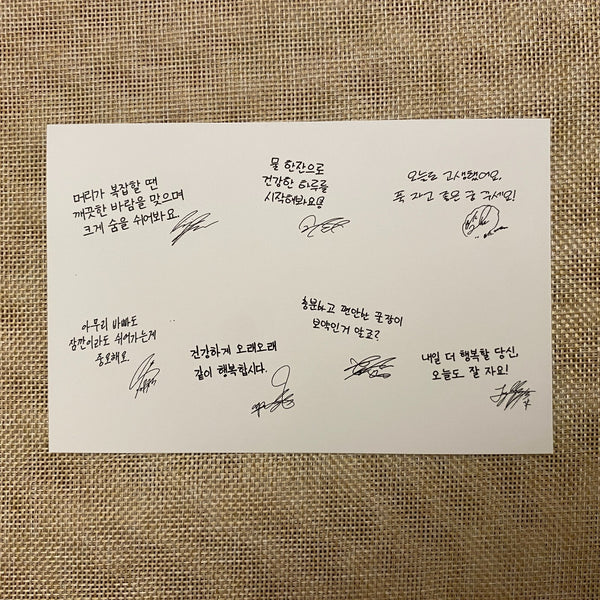 머리가 복잡할 땐
깨끗한 바람을 맞으며
크게 숨을 쉬어봐요.
물 한잔으로
건강한 하루를
시작해봐요!
오늘도 고생했어요.
푹 자고 좋은 꿈 꾸세요!
아무리 바빠도
잠깐이라도 쉬어가는게
중요해요
건강하게 오래오래
같이 행복합시다.
충분하고 편안한 꿀잠이
보약인거 알죠?
내일 더 행복할 당신,
오늘도 잘 자요!